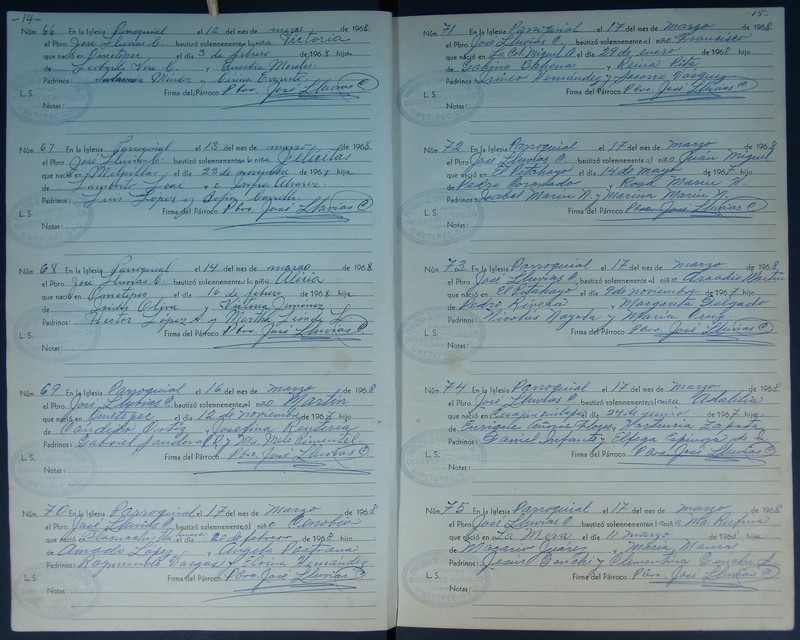 -14-
Núm 66 En la Iglesia Parroquial el 12 del mes de marzo de 1968
el Pbro. José Lluvias C. bautizó solemnemente a la niña Victoria
que nació en Ometepec el día 3 de febrero de 1968 hija
de y Eusebia Morales
Padrinos: y
L. S. Firma del Párroco Pbro. José Lluvias C
Notas:
Núm 67 En la Iglesia Parroquial el 13 del mes de marzo de 1968
el Pbro. José Lluvias C. bautizó solemnemente a la niña Felicitas
que nació en el día 23 de noviembre de 1967 hija
de Lamberto Leal e Alvarez
Padrinos: Luis López y
L. S. Firma del Párroco Pbro. José Lluvias C
Notas:
Núm 68 En la Iglesia Parroquial el 14 del mes de marzo de 1968
el Pbro. José Lluvias C. bautizó solemnemente a la niña Alicia
que nació en Ometepec el día 16 de febrero de 1968 hija
de Oliva y Jimenez
Padrinos: Hector López A y Martha
L. S. Firma del Párroco Pbro. José Lluvias C
Notas:
Núm 69 En la Iglesia Parroquial el 16 del mes de marzo de 1968
el Pbro. José Lluvias C. bautizó solemnemente al niño Martín
que nació en Ometepec el día 12 de noviembre de 1967 hijo
de Cándido Ortiz y Josefina Renteria
Padrinos: Gabriel Sandoval y Ma. Pimentel
L. S. Firma del Párroco Pbro. José Lluvias C
Notas:
Núm 70 En la Iglesia Parroquial el 17 del mes de marzo de 1968
el Pbro. José Lluvias C. bautizó solemnemente al niño Cenobio
que nació en el día 21 de febrero de 1968 hijo
de Amado López y Angela Pastrana
Padrinos: Raymundo Vargas y Hernández
L. S. Firma del Párroco Pbro. José Lluvias C
Notas:
-15-
Núm 71 En la Iglesia Parroquial el 17 del mes de marzo de 1968
el Pbro. José Lluvias C. bautizó solemnemente al niño Francisco
que nació en La Col. Miguel A. el día 29 de enero de 1968 hijo
de Gabino y Reina Pita
Padrinos: Hernández y Socorro Vasquez
L. S. Firma del Párroco Pbro. José Lluvias C
Notas:
Núm 72 En la Iglesia Parroquial el 17 del mes de marzo de 1968
el Pbro. José Lluvias C. bautizó solemnemente al niño Juan Miguel
que nació en El Pitahayo el día 14 de mayo de 1967 hijo
de Pedro Coronado y Rosa Marin H.
Padrinos: Isabel Marin N. y Marina Marin N.
L. S. Firma del Párroco Pbro. José Lluvias C
Notas:
Núm 73 En la Iglesia Parroquial el 17 del mes de marzo de 1968
el Pbro. José Lluvias C. bautizó solemnemente al niño Arcadio Martín
que nació en El Pitahayo el día 9 de noviembre de 1967
de Pedro y Margarita Delgado
Padrinos: Nicolás Noyola y María Cruz
L. S. Firma del Párroco Pbro. José Lluvias C
Notas:
Núm 74 En la Iglesia Parroquial el 17 del mes de marzo de 1968
el Pbro. José Lluvias C. bautizó solemnemente a la niña Adalilia
que nació en Cuajinicuilapa el día 24 de junio de 1967 hija
de Enrique y Hortencia Zapata
Padrinos: Daniel Infante y Espinoza de
L. S. Firma del Párroco Pbro. José Lluvias C
Notas:
Núm 75 En la Iglesia Parroquial el 17 del mes de marzo de 1968
el Pbro. José Lluvias C. bautizó solemnemente a la niña Ma. Rufina
que nació en La Mira el día 11 marzo de 1961 hija
de Macario Juárez y María
Padrinos: Jesús y Clementina
L. S. Firma del Párroco Pbro. José Lluvias C
Notas: